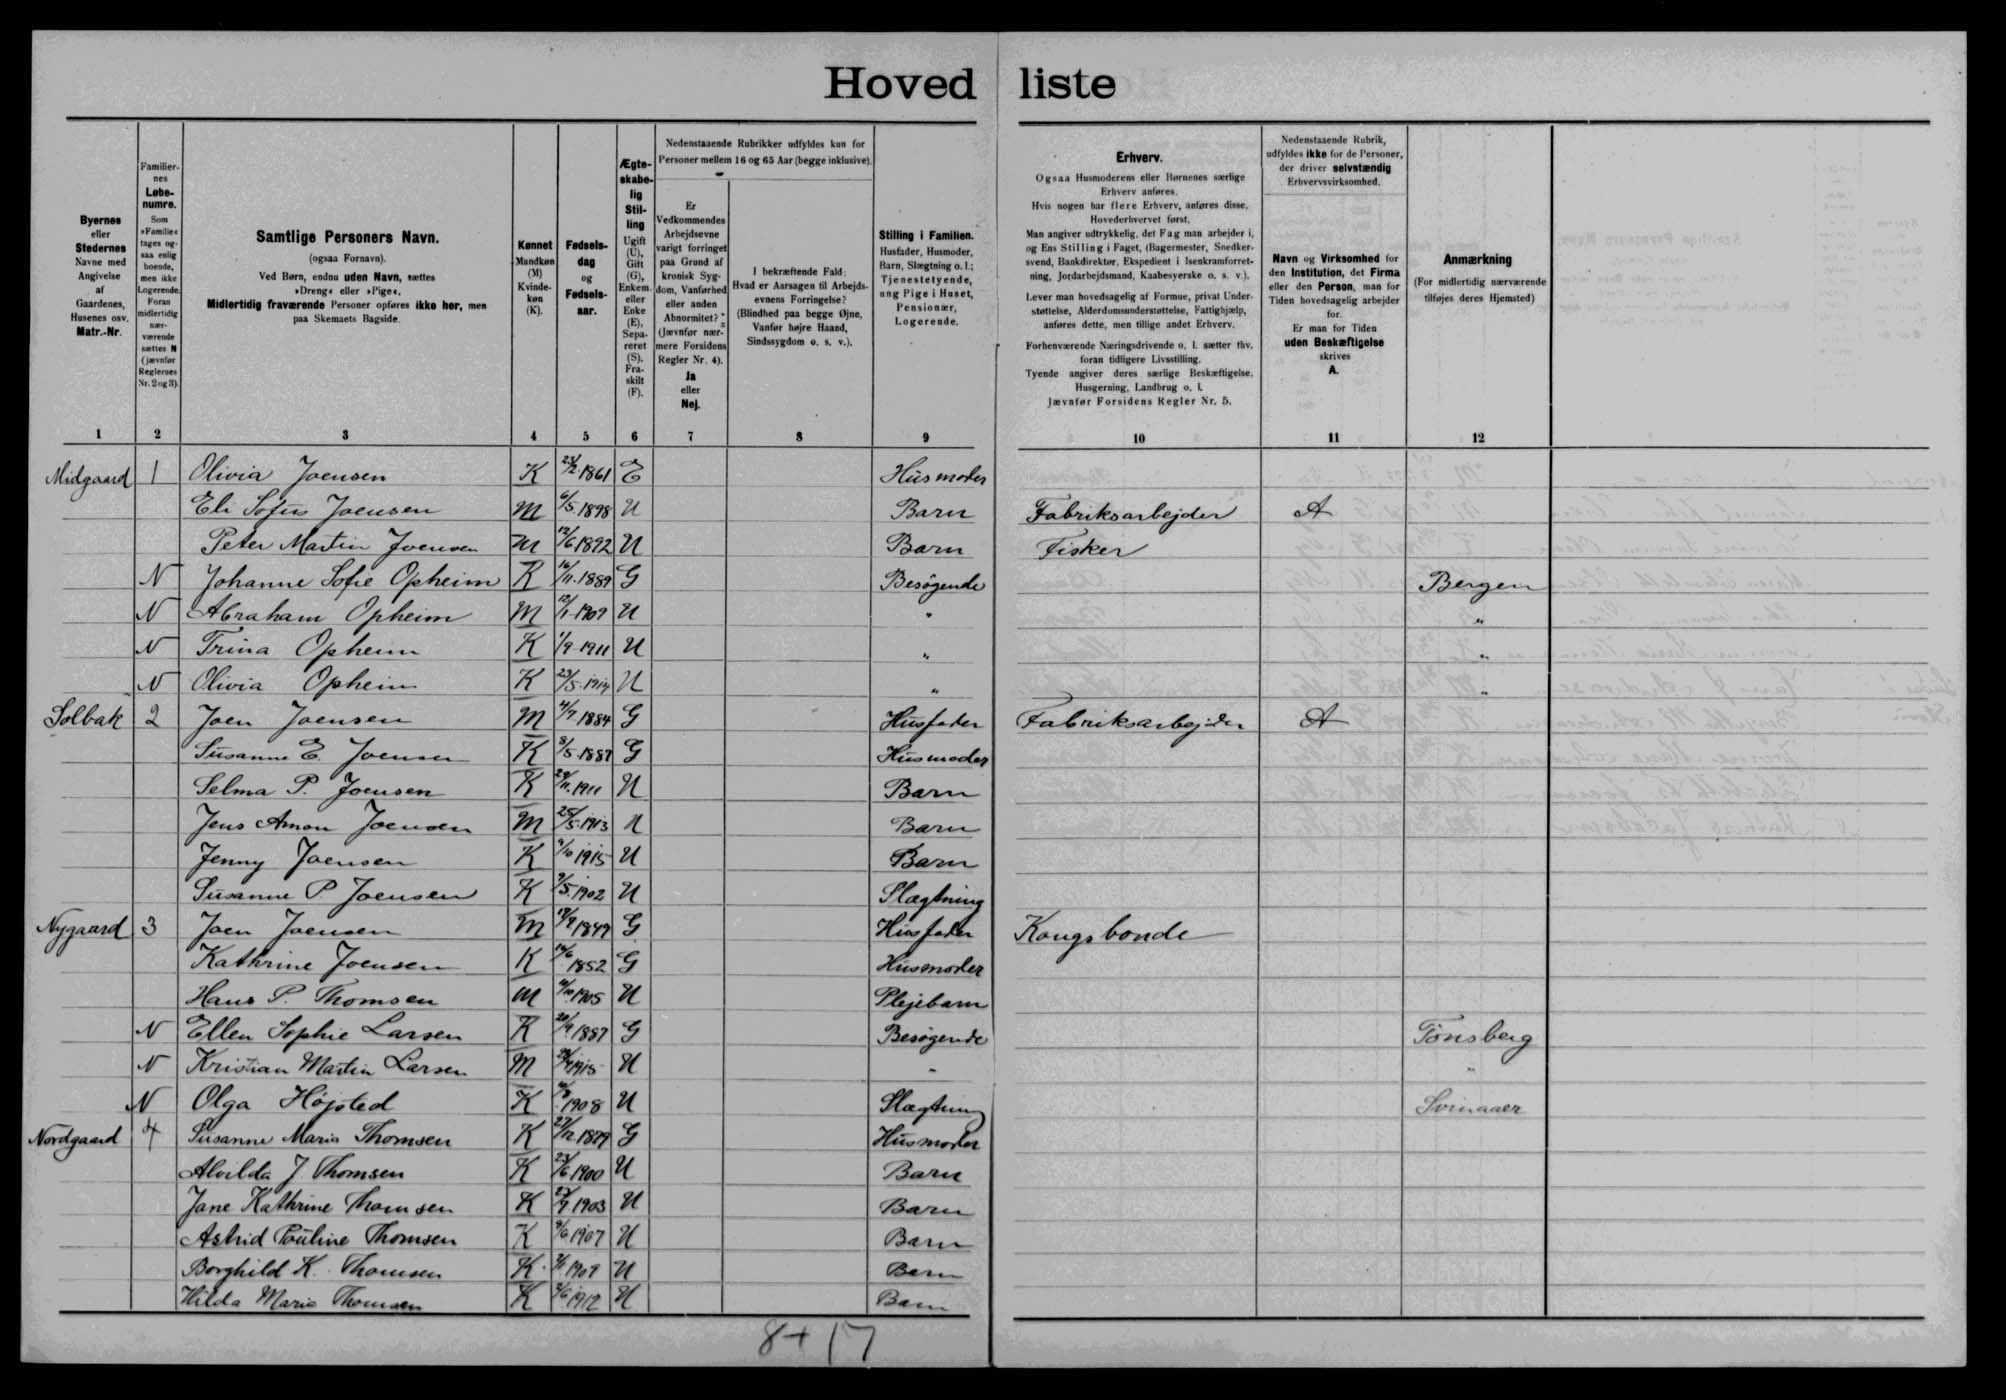 Hoved liste
Byernes
eller
Stedernes
Navne med
Angivelse
af
Gaardenes,
Husenes osv.
Matr.-Nr.
Familier-
nes
Løbe-
numre.
Som
»Familie«
tages og-
saa enlig
boende,
men ikke
Logerende.
Foran
midlertidig
nær-
værende
sættes N
(jævnfør
Reglernes
Nr. 2 og 3).
Samtlige Personers Navn.
(ogsaa Fornavn).
Ved Børn, endnu uden Navn, sættes
»Dreng« eller »Pige«,
Midlertidig fraværende Personer opføres ikke her, men
paa Skemaets Bagside.
Kønnet
Mandkøn
(M)
Kvinde-
køn
(K).
Fødsels-
dag
og
Fødsels-
aar.
Ægte-
skabe-
lig
Stil-
ling
Ugift
(U),
Gift
(G),
Enkem.
eller
Enke
(E),
Sepa-
reret
(S),
Fra-
skilt
(F).
Nedenstaaende Rubrikker udfyldes kun for
Personer mellem 16 og 65 Aar (begge inklusive).
Er
Vedkommendes
Arbejdsevne
varigt forringet
paa Grund af
kronisk Syg-
dom, Vanførhed
eller anden
Abnormitet?
(Jævnfør nær-
mere Forsidens
Regler Nr. 4).
Ja
eller
Nej.
I bekræftende Fald:
Hvad er Aarsagen til Arbejds-
evnens Forringelse?
(Blindhed paa begge Øjne,
Vanfør højre Haand,
Sindssygdom o. s. v.).
Stilling i Familien.
Husfader, Husmoder,
Barn, Slægtning o. l.;
Tjenestetyende,
ung Pige i Huset,
Pensionær,
Logerende.
Erhverv.
Ogsaa Husmoderens eller Børnenes særlige
Erhverv anføres.
Hvis nogen har flere Erhverv, anføres disse,
Hovederhvervet først.
Man angiver udtrykkelig, det Fag man arbejder i,
og Ens Stilling i Faget, (Bagermester, Snedker-
svend, Bankdirektør, Ekspedient i Isenkramforret-
ning, Jordarbejdsmand, Kaabesyerske o. s. v.).
Lever man hovedsagelig af Formue, privat Under-
støttelse, Alderdomsunderstøttelse, Fattighjælp,
anføres dette, men tillige andet Erhverv.
Forhenværende Næringsdrivende o. l. sætter thv.
foran tidligere Livsstilling.
Tyende angiver deres særlige Beskæftigelse,
Husgerning, Landbrug o. l.
Jævnfør Forsidens Regler Nr. 5.
Nedenstaaende Rubrik,
udfyldes ikke for de Personer,
der driver selvstændig
Erhvervsvirksomhed.
Navn og Virksomhed for
den Institution, det Firma
eller den Person, man for
Tiden hovedsagelig arbejder
for.
Er man for Tiden
uden Beskæftigelse
skrives
A.
Anmærkning
(For midlertidig nærværende
tilføjes deres Hjemsted)
1 2 3 4 5 6 7 8 9 10 11 12
Midgaard 1 Olivia Joensen K 1861 E Husmoder
Eli Sofus Joensen M 6/5 1898 U Barn Fabriksarbejder A
Peter Martin Joensen M 12/6 1892 U Barn Fisker
N Johanne Sofie Opheim K 16/11 1889 G Besøgende Bergen
N Abraham Opheim M 12/1 1909 U " "
N Trina Opheim K 1/9 1911 U " "
N Olivia Opheim K 23/5 1914 U " "
Solbak 2 Joen Joensen M 4/7 1884 G Husfader Fabriksarbejder A
Susanne E. Joensen K 8/5 1887 G Husmoder
Selma P. Joensen K 24/11 1911 U Barn
Jens Amon Joensen M 25/5 1913 U Barn
Jenny Joensen K 9/10 1915 U Barn
Susanne P. Joensen K 9/5 1902 U Slægtning
Nygaard 3 Joen Joensen M 1849 G Husfader Kongsbonde
Kathrine Joensen K 1852 G Husmoder
Hans P. Thomsen M 1905 U Plejebarn
N Ellen Sophie Larsen K 20/9 1887 G Besøgende Tønsberg
N Kristian Martin Larsen M 1915 U " "
N Olga Højsted K 1908 U Slægtning Svinaaer
Nordgaard 4 Susanne Maria Thomsen K 27/12 1879 G Husmoder
Alvilda J. Thomsen K 23/6 1900 U Barn
Jane Kathrine Thomsen K 1903 U Barn
Astrid Pouline Thomsen K 9/6 1907 U Barn
Borghild K. Thomsen K 1909 U Barn
Hilda Maria Thomsen K 2/6 1912 U Barn
8+17